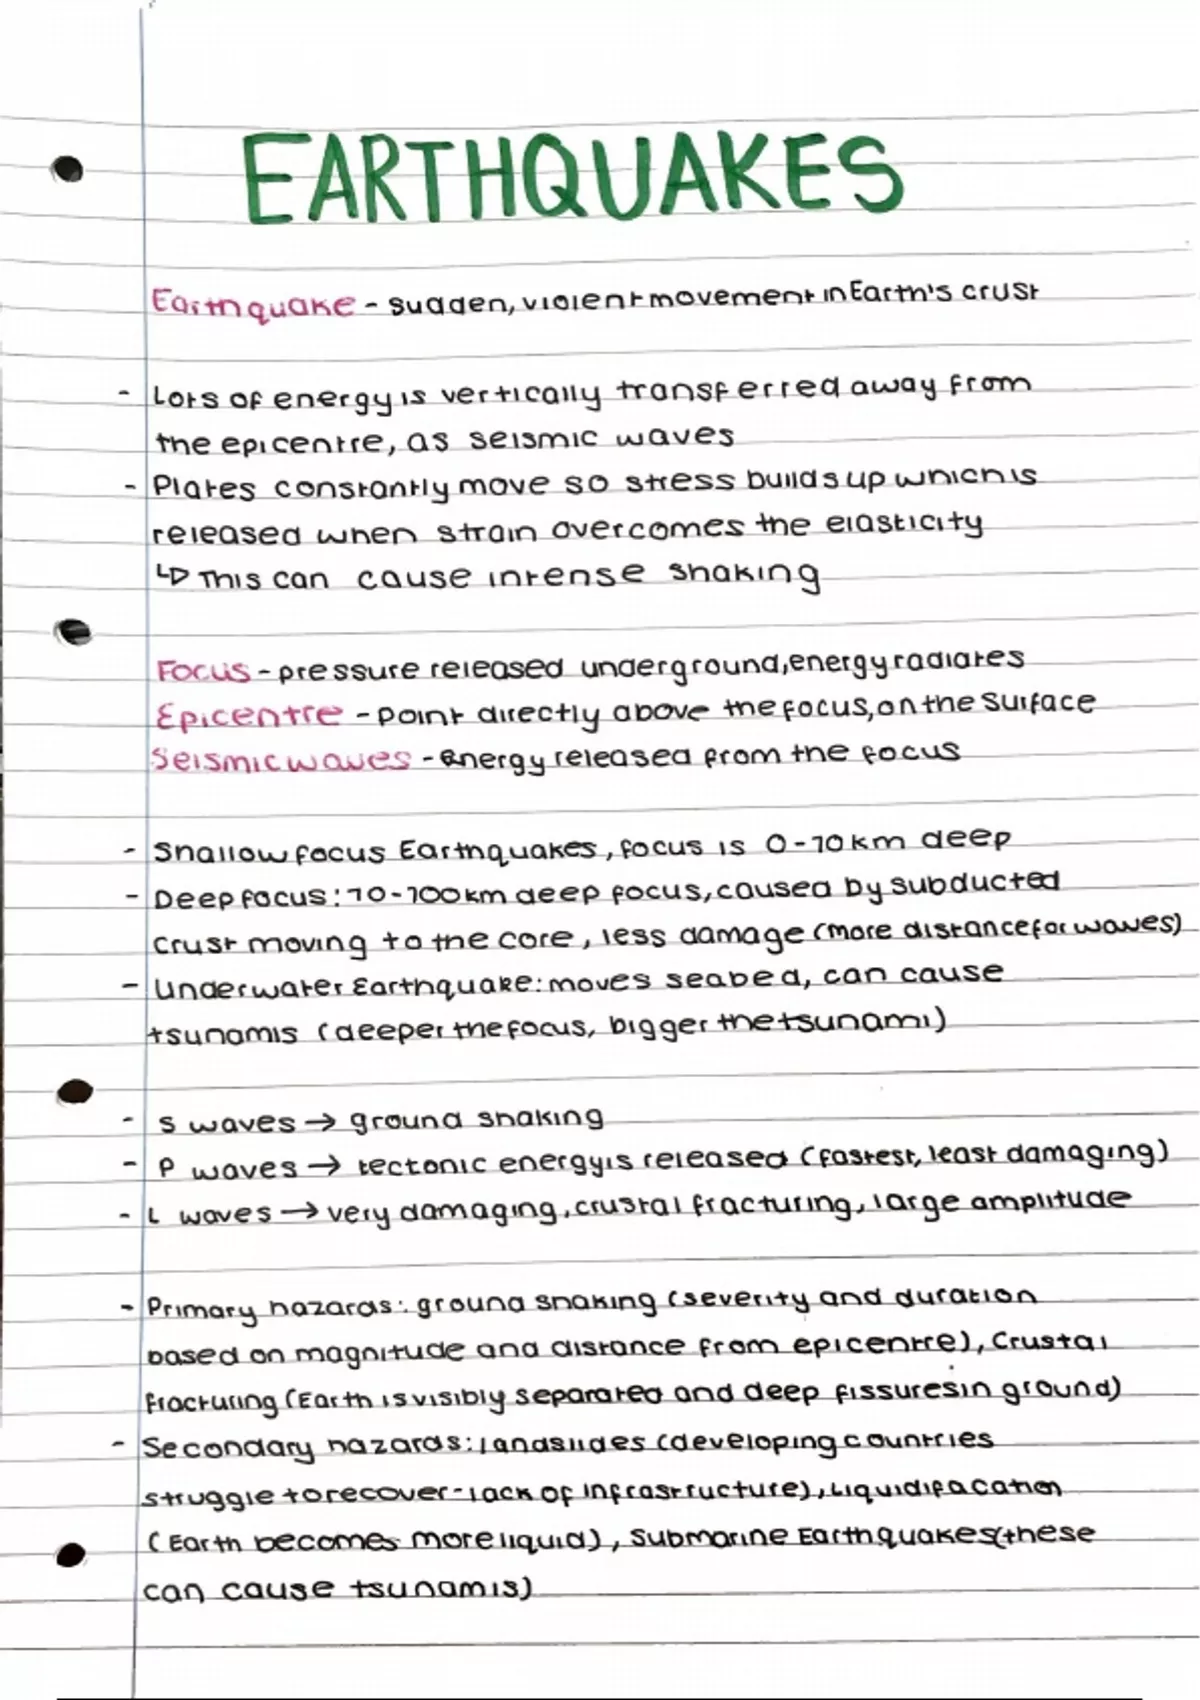 EARTHQUAKES
Earthquake - sudden, violent movement in Earth's crust
- Lots of energy is vertically transferred away from
the epicentre, as seismic waves
- Plates constantly move so stress builds up which is
released when strain overcomes the elasticity
↳ This can cause intense shaking
Focus - pressure released underground, energy radiates
Epicentre - point directly above the focus, on the surface
Seismic waves - energy released from the focus
- Shallow focus Earthquakes, focus is 0-70km deep
- Deep focus: 70-700km deep focus, caused by subducted
crust moving to the core, less damage (more distance for waves)
- Underwater Earthquake: moves seabed, can cause
tsunamis (deeper the focus, bigger the tsunami)
- S waves → ground shaking
- P waves → tectonic energy is released (fastest, least damaging)
- L waves → very damaging, crustal fracturing, large amplitude
- Primary hazards: ground shaking (severity and duration
based on magnitude and distance from epicentre), Crustal
fracturing (Earth is visibly separated and deep fissures in ground)
- Secondary hazards: landslides (developing countries
struggle to recover - lack of infrastructure), Liquidifacation
(Earth becomes more liquid), Submarine Earthquakes (these
can cause tsunamis)